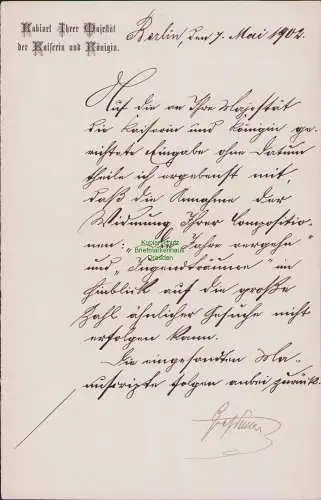 Kabinet Ihrer Majestät
der Kaiserin und Königin.
Berlin, den 7. Mai 1902.
Auf die an Ihre Majestät
die Kaiserin und Königin ge-
richtete Eingabe ohne Datum
theile ich ergebenst mit,
daß die Annahme der
Widmung Ihrer Compositio-
nen: „Die Jahre vergehn"
und „Jugendträume" im
Hinblick auf die große
Zahl ähnlicher Gesuche nicht
erfolgen kann.
Die eingesandten Ma-
nuskripte folgen anbei zurück.
Kupierschutz
Briefmarkenhaus
Dresden